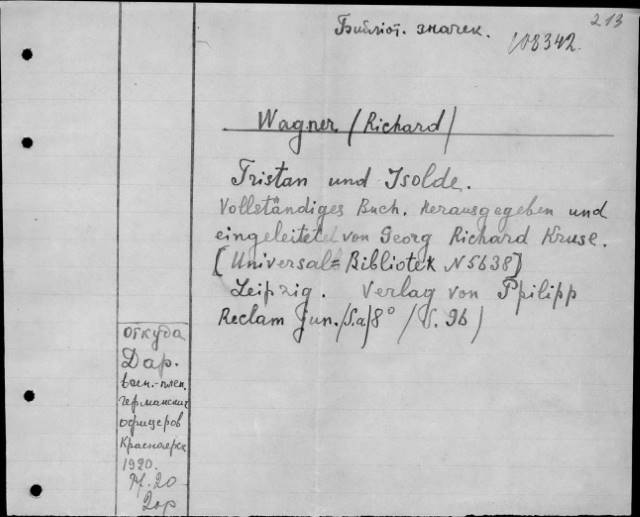 213
Библіот. значек. 108342.
Wagner (Richard)
Tristan und Isolde.
Vollständiges Buch. Herausgegeben und
eingeleitet von Georg Richard Kruse.
[Universal=Bibliotek N 5638]
Leipzig. Verlag von Ppilipp
Reclam jun. /S.a/8° /S. 96)
Откуда
Дар.
воен.-плен.
германских
офицеров
Красноярск
1920.
20
Дар